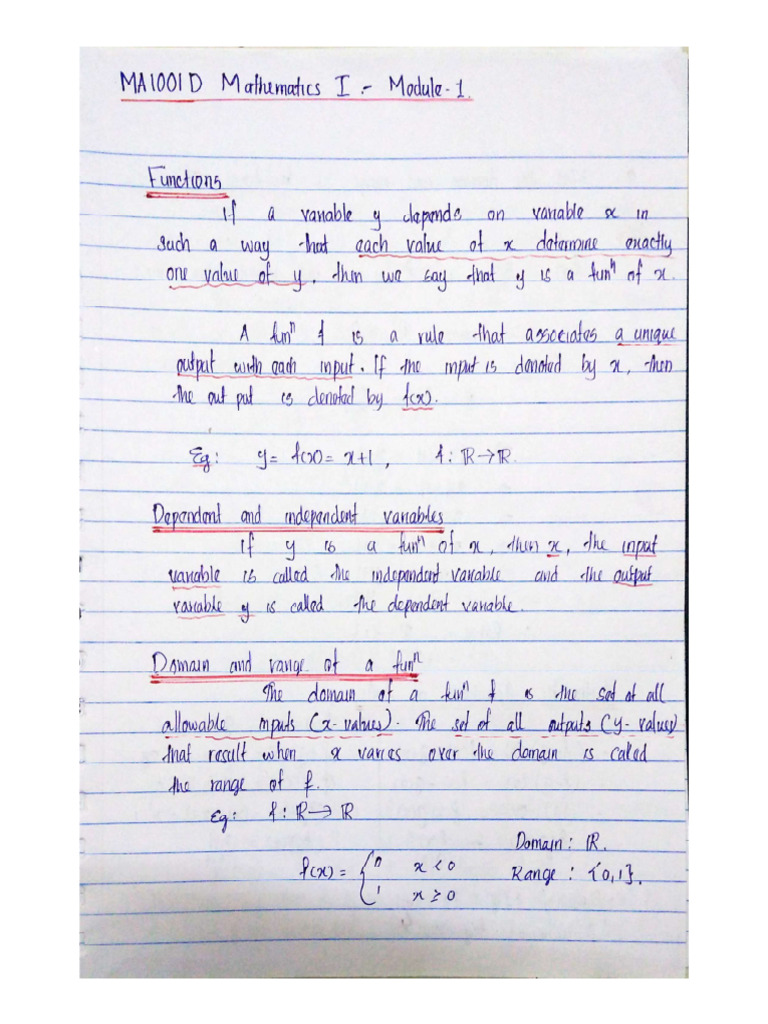 MA1001D Mathematics I :- Module-1.
Functions
If a variable y depends on variable x in
such a way that each value of x determine exactly
one value of y, then we say that y is a funⁿ of x.
A funⁿ f is a rule that associates a unique
output with each input. If the input is denoted by x, then
the out put is denoted by f(x).
Eg: y= f(x)= x+1, f: ℝ→ℝ.
Dependent and independent variables
If y is a funⁿ of x, then x, the input
variable is called the independent variable and the output
variable y is called the dependent variable.
Domain and range of a funⁿ
The domain of a funⁿ f is the set of all
allowable inputs (x-values). The set of all outputs (y-values)
that result when x varies over the domain is called
the range of f.
Eg: f: ℝ→ℝ
Domain: ℝ.
f(x) = { 0 x < 0
Range : {0,1}.
1 x ≥ 0